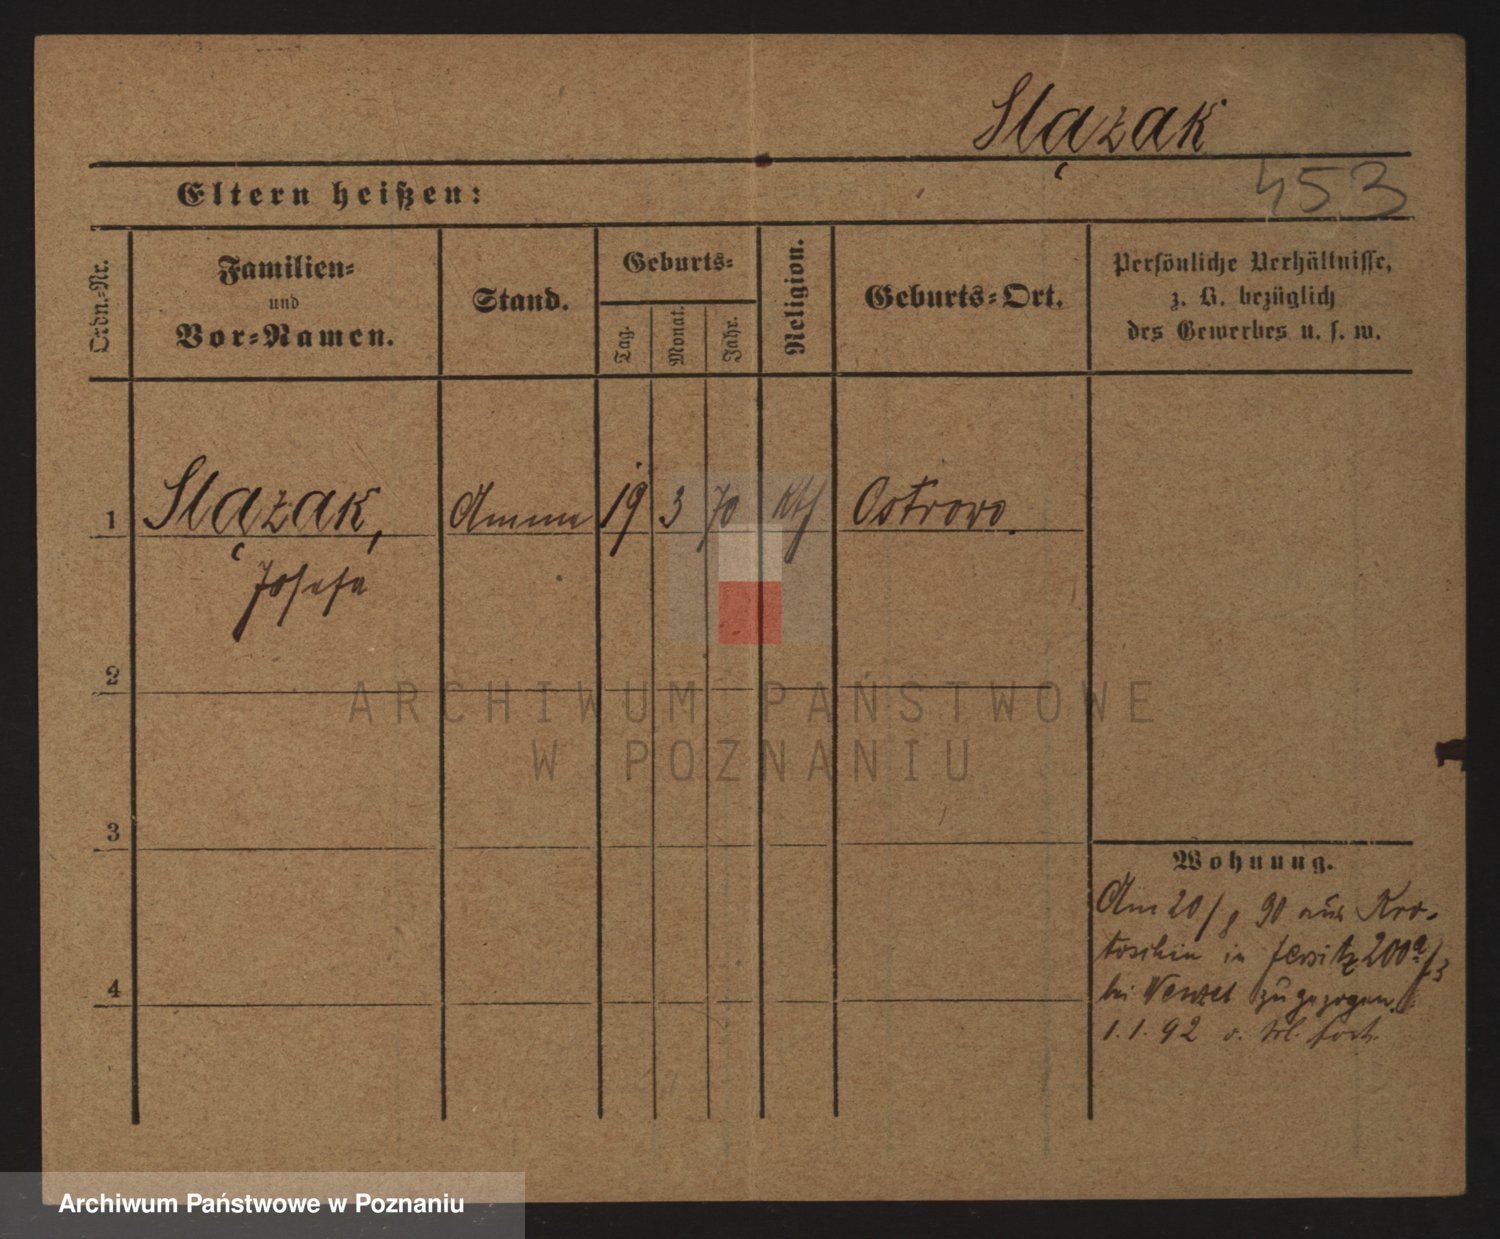 Slązak
453
Eltern heißen:
Ordn.-Nr.
Familien-
und
Vor-Namen.
Stand.
Geburts-
Tag.
Monat.
Jahr.
Religion.
Geburts-Ort.
Persönliche Verhältnisse,
z. B. bezüglich
des Gewerbes u. s. w.
1 Slązak, Amme 19 3 70 Kth Ostrowo.
Josefa
2
ARCHIWUM PAŃSTWOWE
W POZNANIU
3
Wohnung.
Am 20/8 90 aus Kro-
toschin in Jersitz 200a/3
bei Wenzel zugezogen.
4
1.1.92 v. fort.
Archiwum Państwowe w Poznaniu